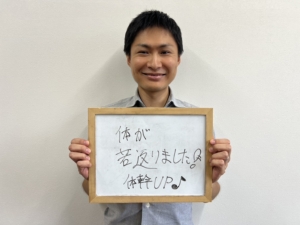 体が
若返りました♪
体幹UP♪